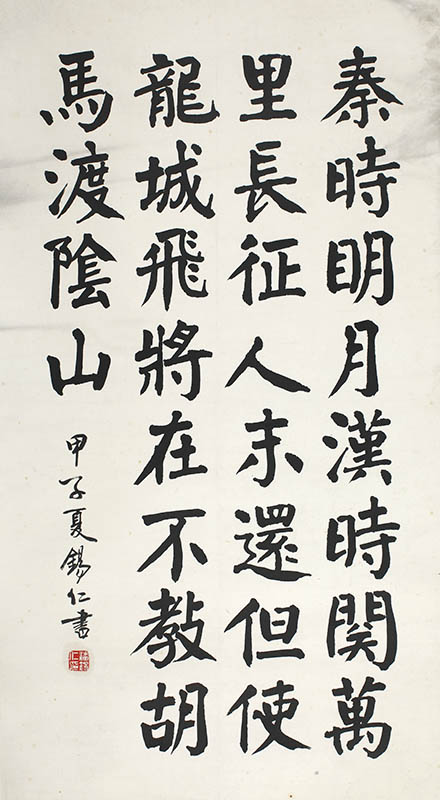 秦時明月漢時関萬
里長征人未還但使
龍城飛將在不教胡
馬渡陰山
甲子夏錫仁書